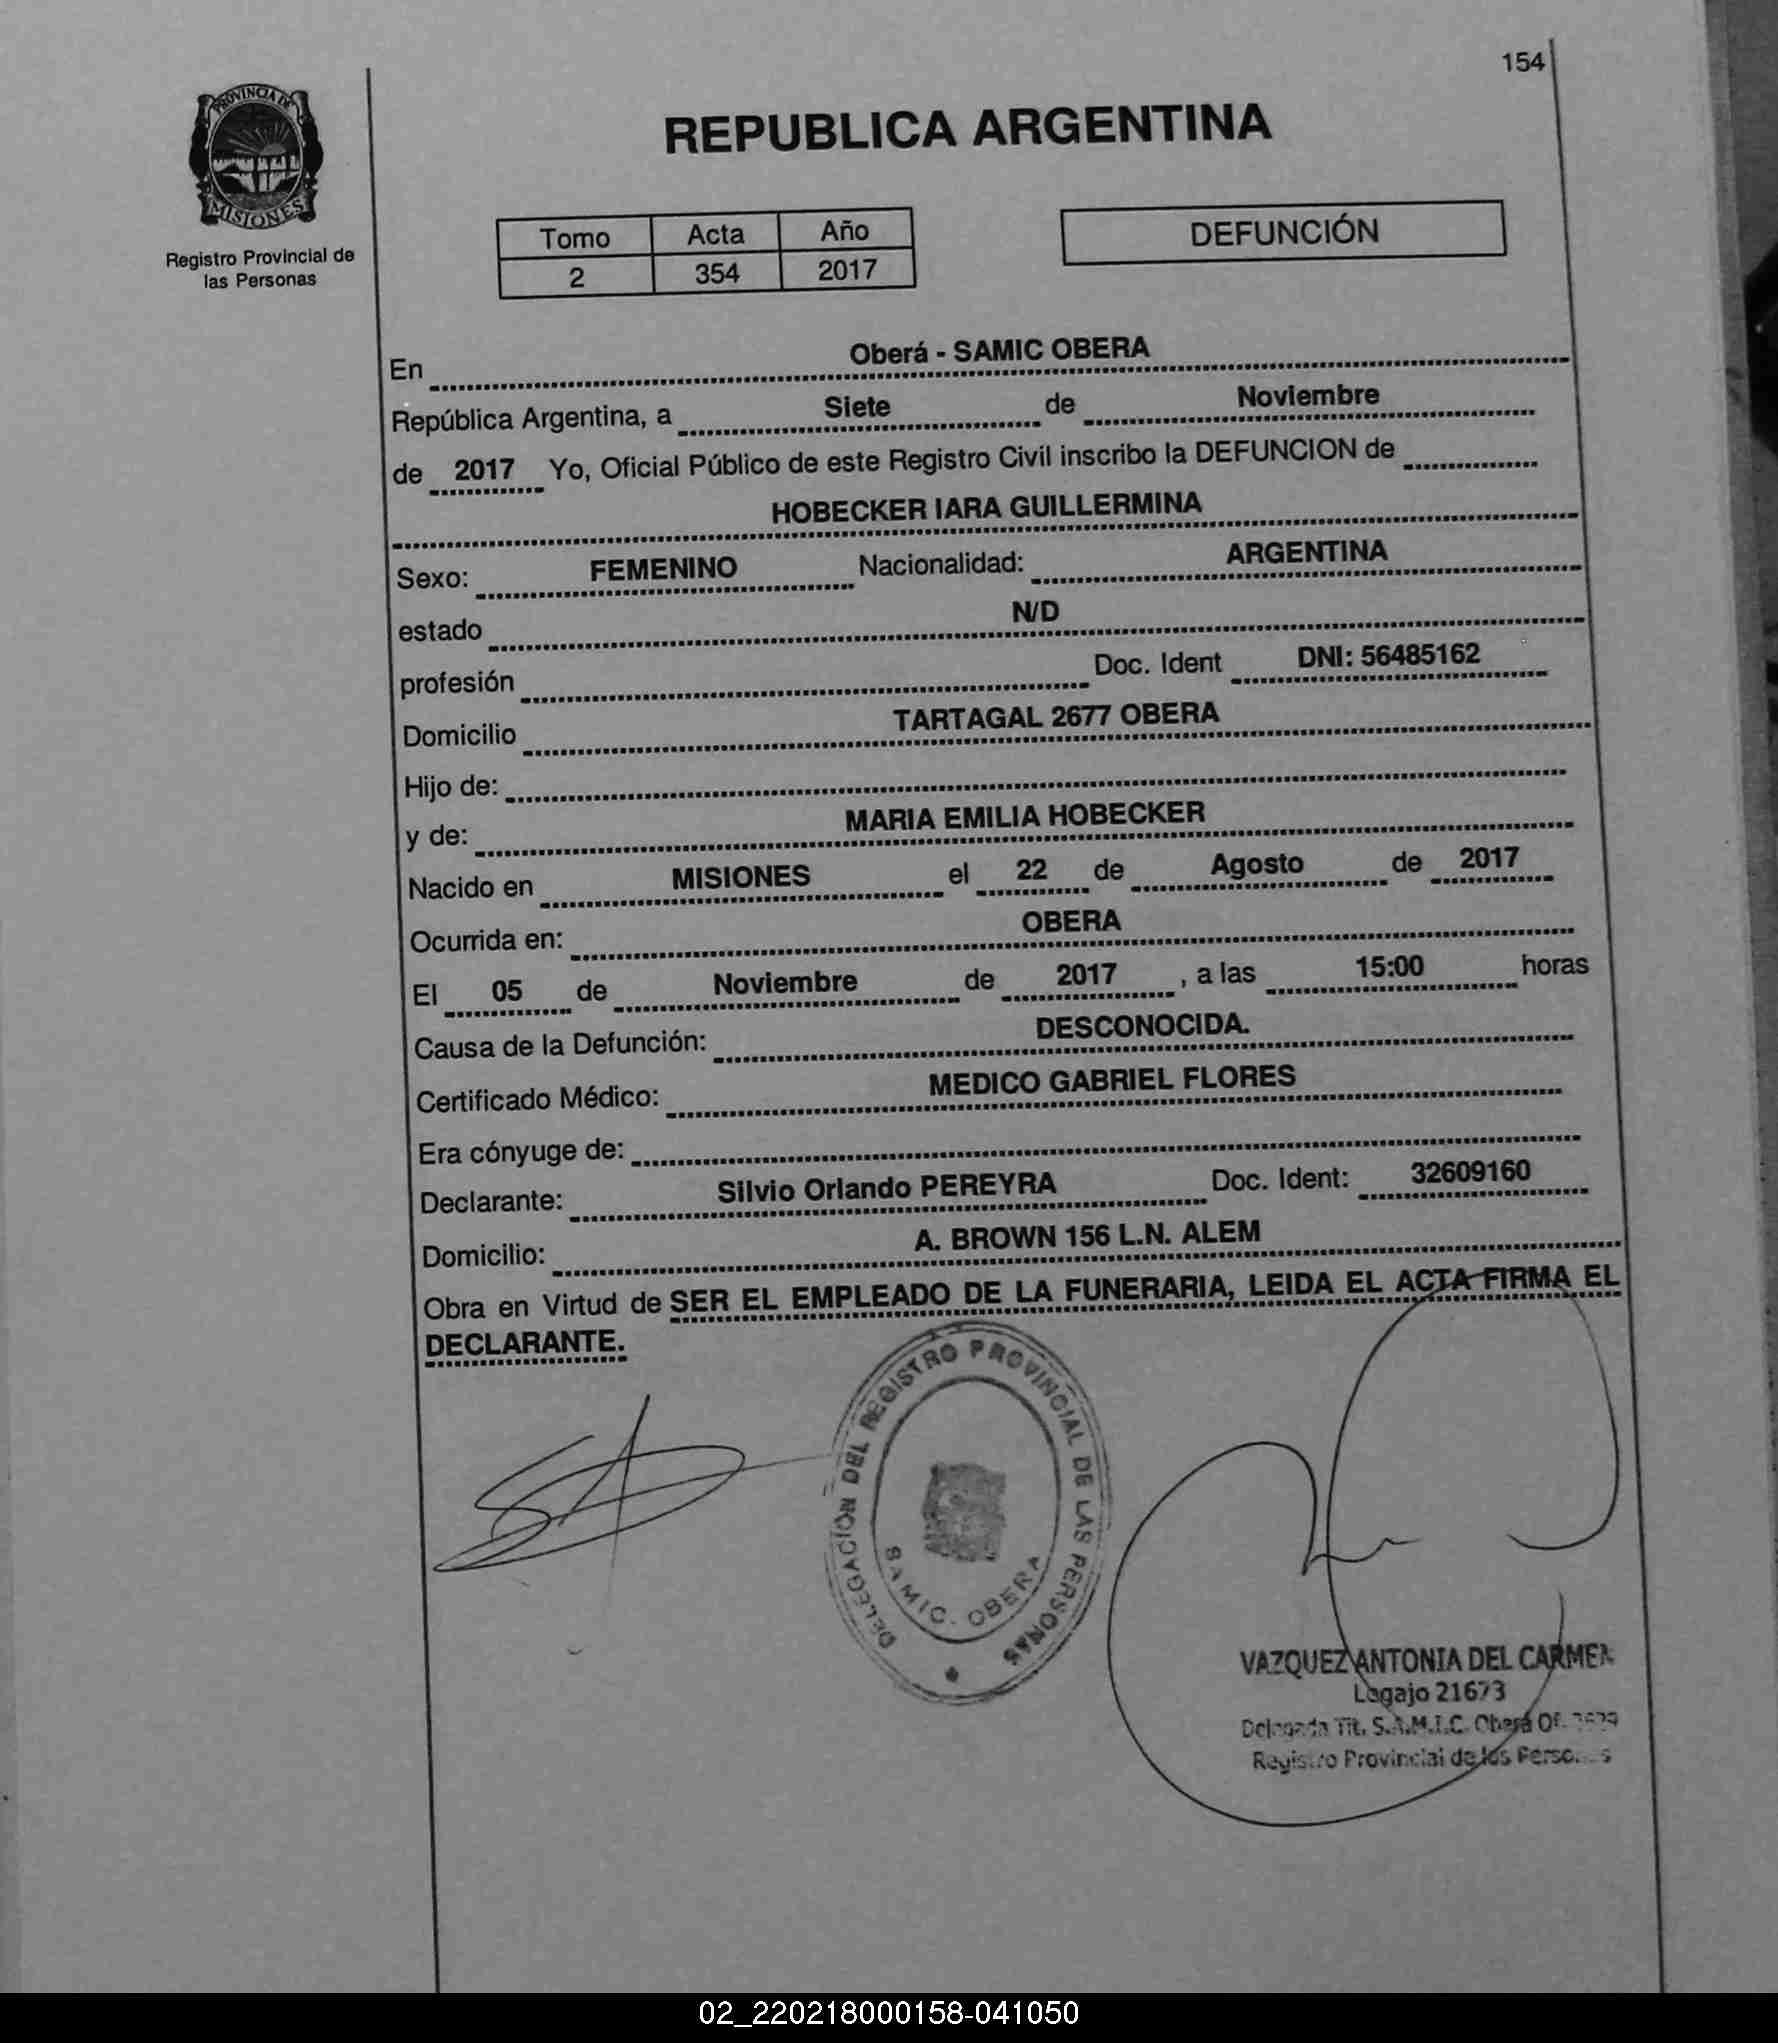 154
PROVINCIA DE
MISIONES
Registro Provincial de
las Personas
REPUBLICA ARGENTINA
Tomo Acta Año
2 354 2017
DEFUNCIÓN
En Oberá - SAMIC OBERA
República Argentina, a Siete de Noviembre
de 2017 Yo, Oficial Público de este Registro Civil inscribo la DEFUNCION de
HOBECKER IARA GUILLERMINA
Sexo: FEMENINO Nacionalidad: ARGENTINA
estado N/D
profesión Doc. Ident DNI: 56485162
Domicilio TARTAGAL 2677 OBERA
Hijo de:
y de: MARIA EMILIA HOBECKER
Nacido en MISIONES el 22 de Agosto de 2017
Ocurrida en: OBERA
El 05 de Noviembre de 2017 , a las 15:00 horas
Causa de la Defunción: DESCONOCIDA.
Certificado Médico: MEDICO GABRIEL FLORES
Era cónyuge de:
Declarante: Silvio Orlando PEREYRA Doc. Ident: 32609160
Domicilio: A. BROWN 156 L.N. ALEM
Obra en Virtud de SER EL EMPLEADO DE LA FUNERARIA, LEIDA EL ACTA FIRMA EL
DECLARANTE.
DELEGACION DEL REGISTRO PROVINCIAL DE LAS PERSONAS
SAMIC. OBERA
VAZQUEZ ANTONIA DEL CARMEN
Legajo 21673
Delegada Tit. S.A.M.I.C. Oberá Of.
Registro Provincial de las Personas
02_220218000158-041050